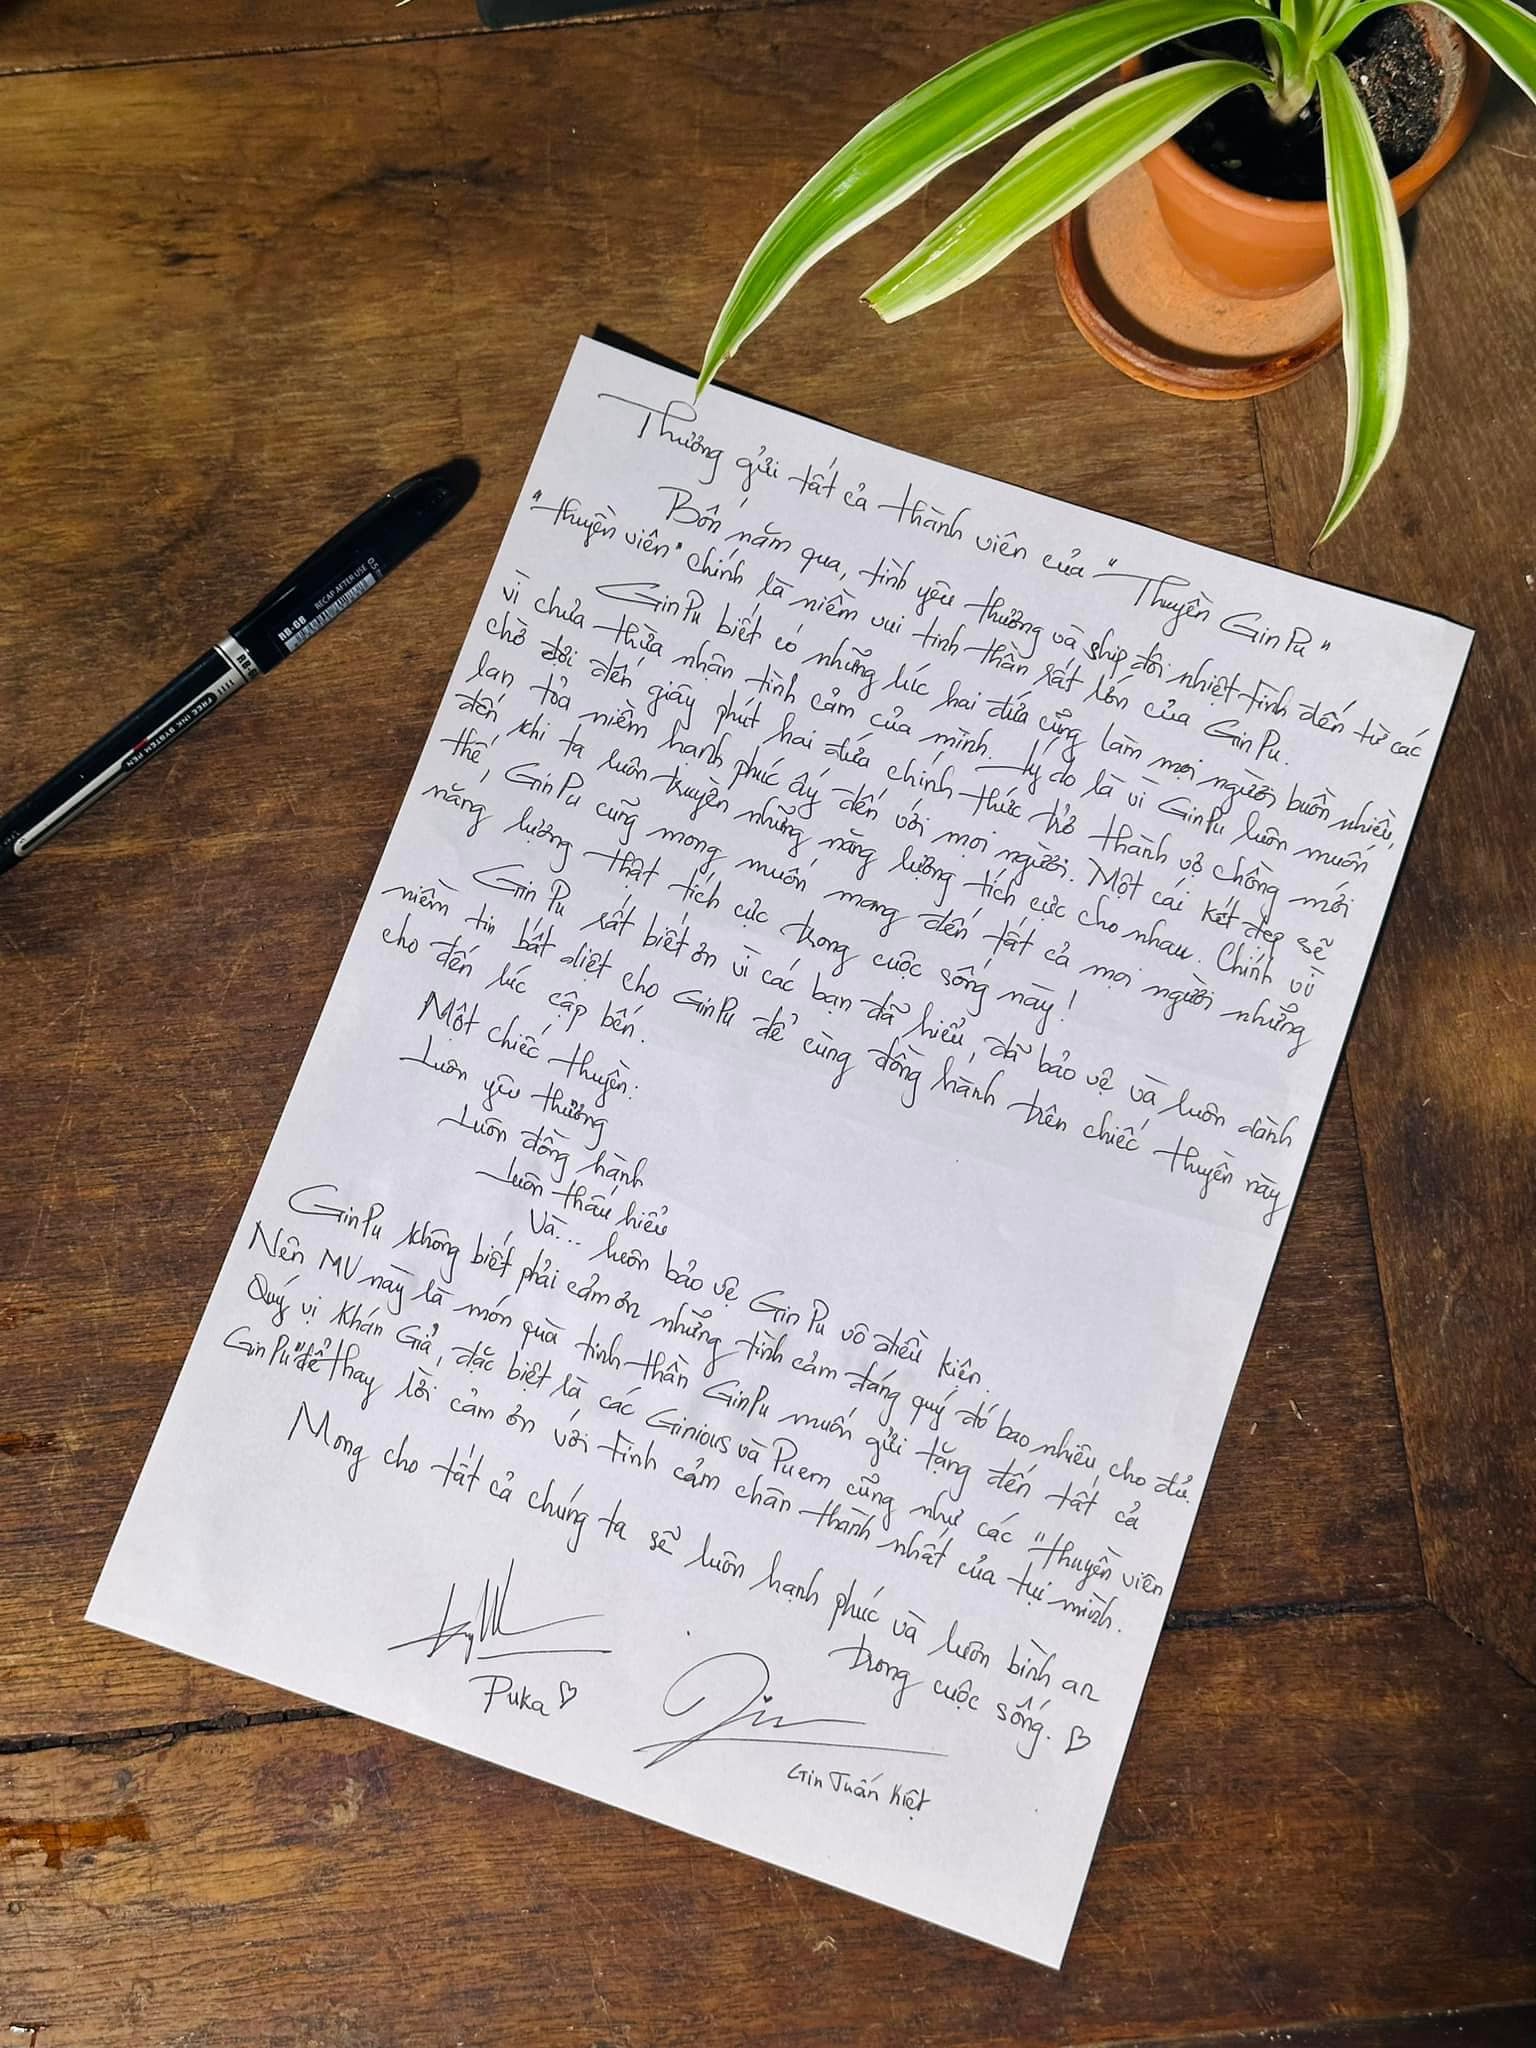 Thương gửi tất cả thành viên của "Thuyền GinPu"
Bốn năm qua, tình yêu thương và ship đôi nhiệt tình đến từ các
"thuyền viên" chính là niềm vui tinh thần rất lớn của GinPu.
GinPu biết có những lúc hai đứa cũng làm mọi người buồn nhiều,
vì chưa thừa nhận tình cảm của mình. Lý do là vì GinPu luôn muốn
chờ đợi đến giây phút hai đứa chính thức trở thành vợ chồng mới
lan tỏa niềm hạnh phúc ấy đến với mọi người. Một cái kết đẹp sẽ
đến khi ta luôn truyền những năng lượng tích cực cho nhau. Chính vì
thế, GinPu cũng mong muốn mang đến tất cả mọi người những
năng lượng thật tích cực trong cuộc sống này!
GinPu rất biết ơn vì các bạn đã hiểu, đã bảo vệ và luôn dành
niềm tin bất diệt cho GinPu để cùng đồng hành trên chiếc thuyền này
cho đến lúc cập bến.
Một chiếc thuyền:
Luôn yêu thương
Luôn đồng hành
Luôn thấu hiểu
Và... luôn bảo vệ GinPu vô điều kiện.
GinPu không biết phải cảm ơn những tình cảm đáng quý đó bao nhiêu cho đủ.
Nên MV này là món quà tinh thần GinPu muốn gửi tặng đến tất cả
Quý vị Khán Giả, đặc biệt là các Ginious và Puem cũng như các "thuyền viên
GinPu" để thay lời cảm ơn với tình cảm chân thành nhất của tụi mình.
Mong cho tất cả chúng ta sẽ luôn hạnh phúc và luôn bình an
trong cuộc sống.
Puka
Gin Tuấn Kiệt
RB-68
RECAP AFTER USE
FREE INK SYSTEM PEN